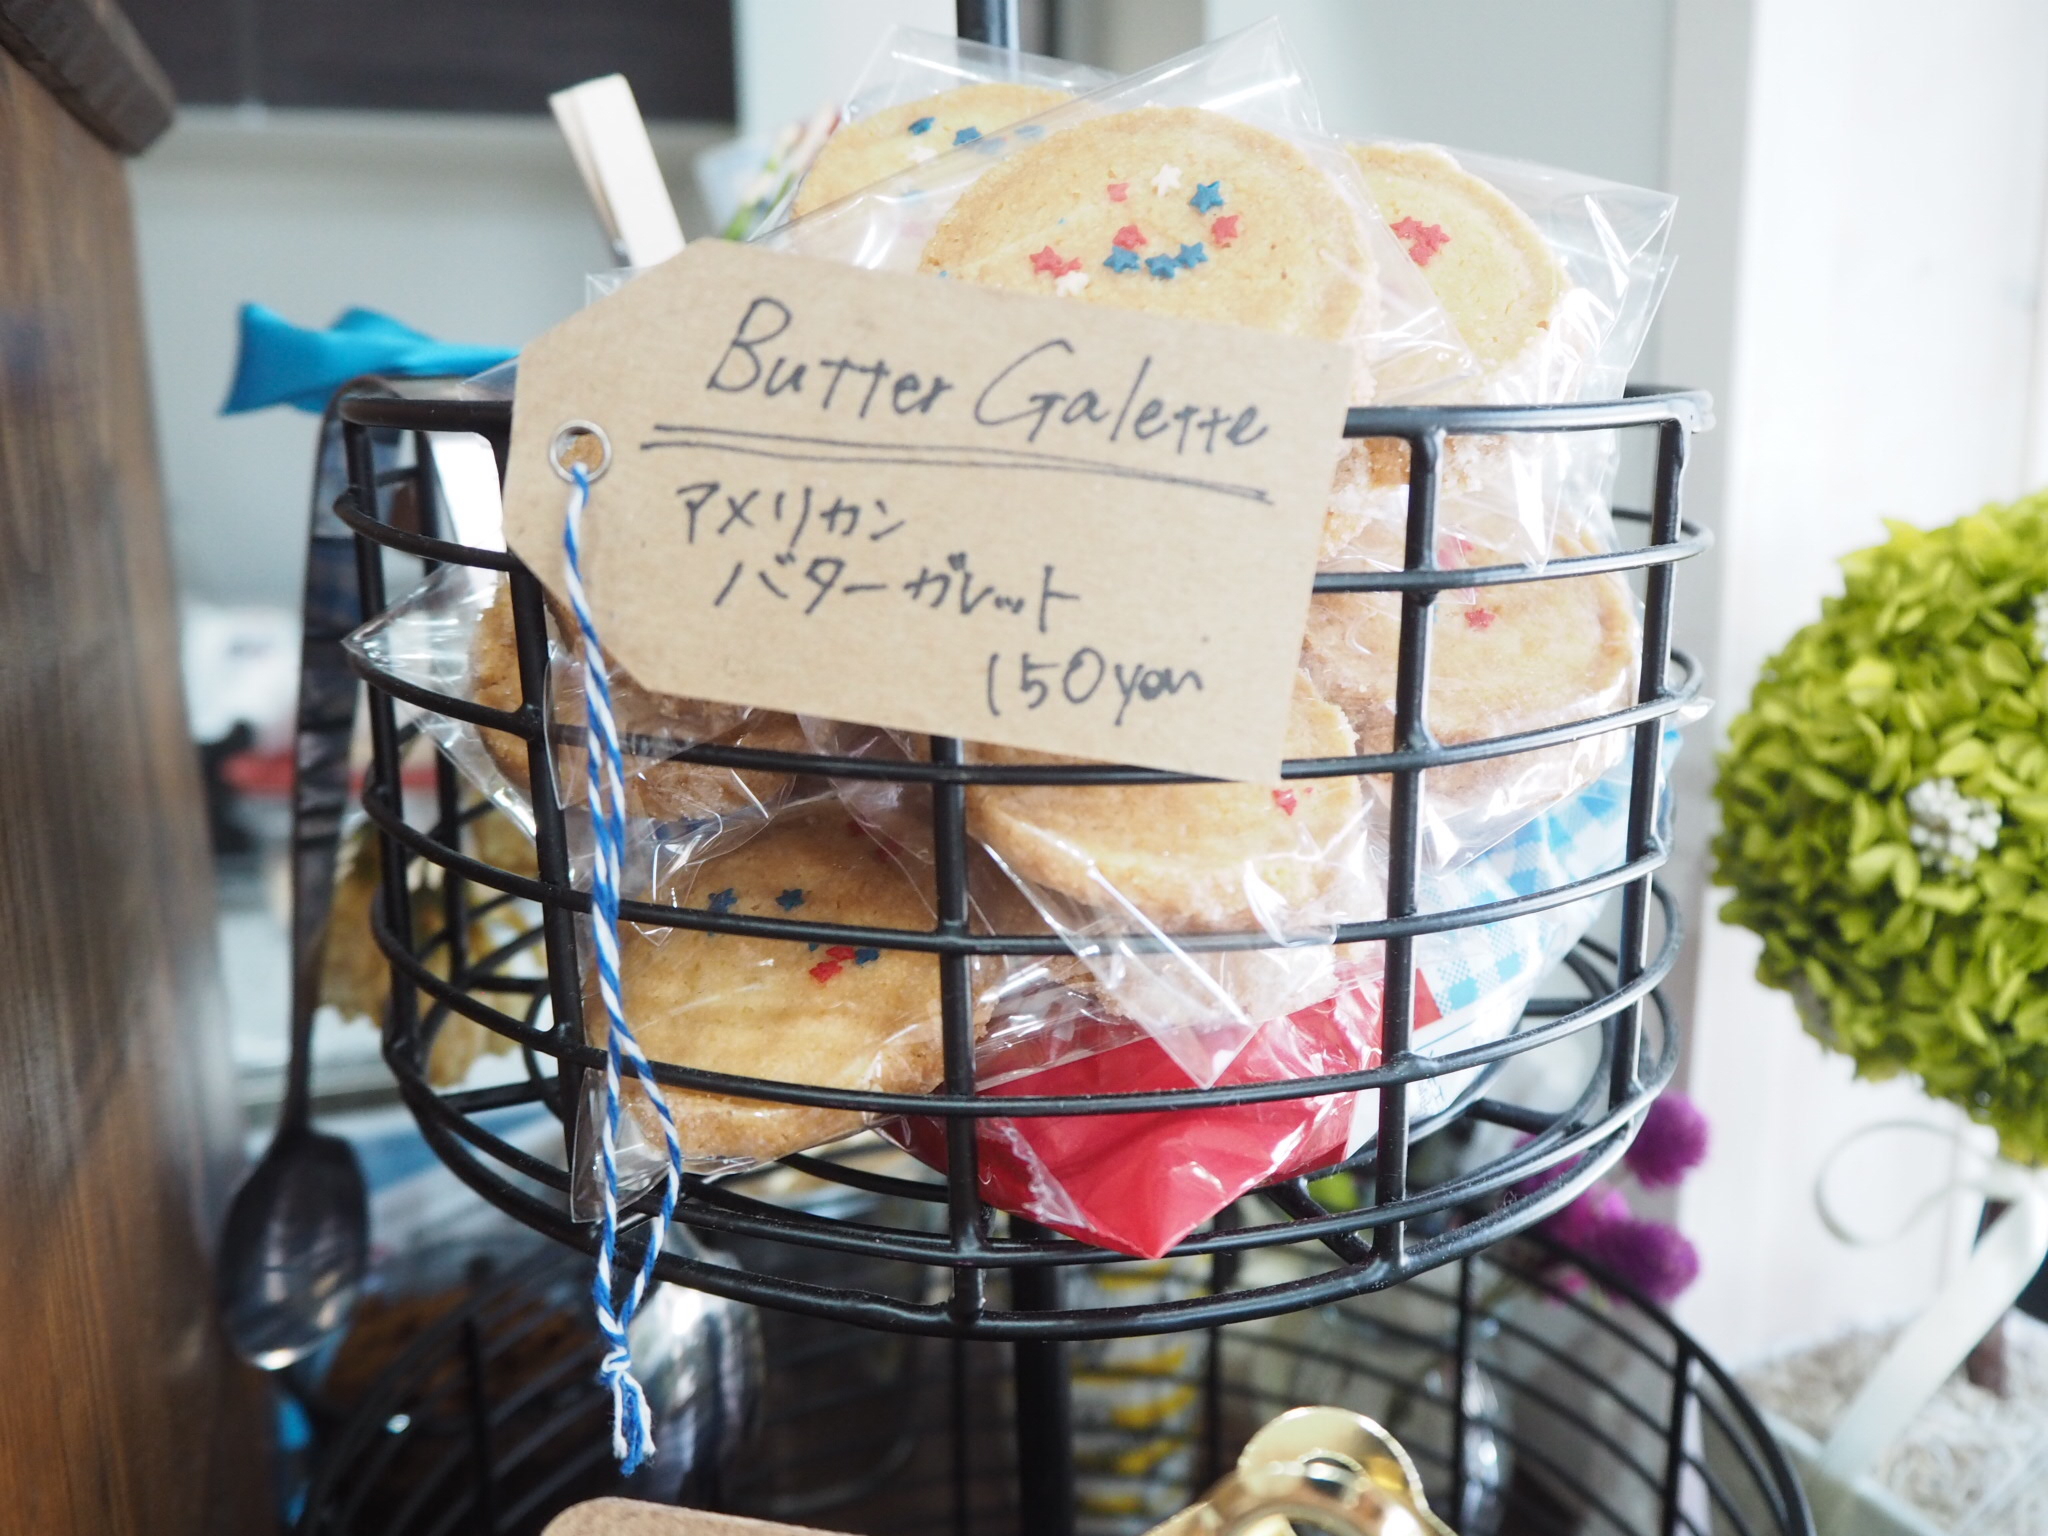 Butter Galette
アメリカン
バターガレット
150yen